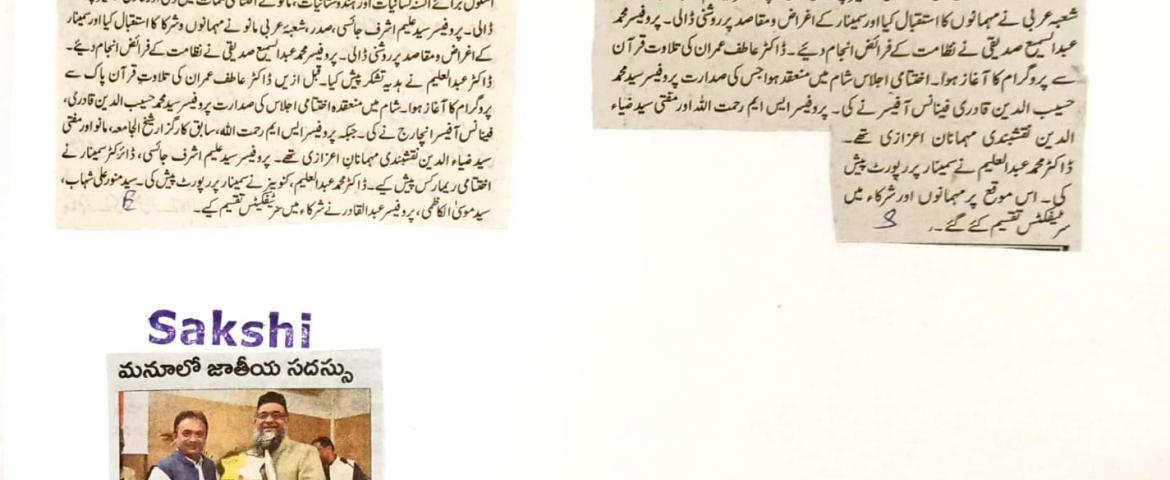 ڈالی۔ پروفیسر سید علیم اشرف جائسی، صدر، شعبۂ عربی مانو نے مہمانوں و شرکا کا استقبال کیا اور سمینار
کے اغراض و مقاصد پر روشنی ڈالی۔ پروفیسر محمد عبدالسمیع صدیقی نے نظامت کے فرائض انجام دیئے۔
ڈاکٹر عبدالعلیم نے ہدیہ تشکر پیش کیا۔ قبل ازیں ڈاکٹر عاطف عمران کی تلاوتِ قرآن پاک سے
پروگرام کا آغاز ہوا۔ شام میں منعقدہ اختتامی اجلاس کی صدارت پروفیسر سید محمد حسیب الدین قادری،
فینانس آفیسر انچارج نے کی۔ جبکہ پروفیسر ایس ایم رحمت اللہ، سابق کارگزار شیخ الجامعہ، مانو اور مفتی
سید ضیاء الدین نقشبندی مہمانانِ اعزازی تھے۔ پروفیسر سید علیم اشرف جائسی، ڈائرکٹر سمینار نے
اختتامی ریمارکس پیش کیے۔ ڈاکٹر محمد عبدالعلیم، کنوینر نے سمینار پر رپورٹ پیش کی۔ سید منور علی شہاب،
سید موسیٰ الکاظمی، پروفیسر عبدالقادر نے شرکاء میں سرٹیفکیٹس تقسیم کیے۔
شعبہ عربی نے مہمانوں کا استقبال کیا اور سمینار کے اغراض و مقاصد پر روشنی ڈالی۔ پروفیسر محمد
عبدالسمیع صدیقی نے نظامت کے فرائض انجام دیئے۔ ڈاکٹر عاطف عمران کی تلاوت قرآن
سے پروگرام کا آغاز ہوا۔ اختتامی اجلاس شام میں منعقد ہوا جس کی صدارت پروفیسر سید محمد
حسیب الدین قادری فینانس آفیسر نے کی۔ پروفیسر ایس ایم رحمت اللہ اور مفتی سید ضیاء
الدین نقشبندی مہمانان اعزازی تھے۔
ڈاکٹر محمد عبدالعلیم نے سمینار پر رپورٹ پیش
کی۔ اس موقع پر مہمانوں اور شرکاء میں
سرٹیفکٹس تقسیم کئے گئے۔
Sakshi
మనూలో జాతీయ సదస్సు